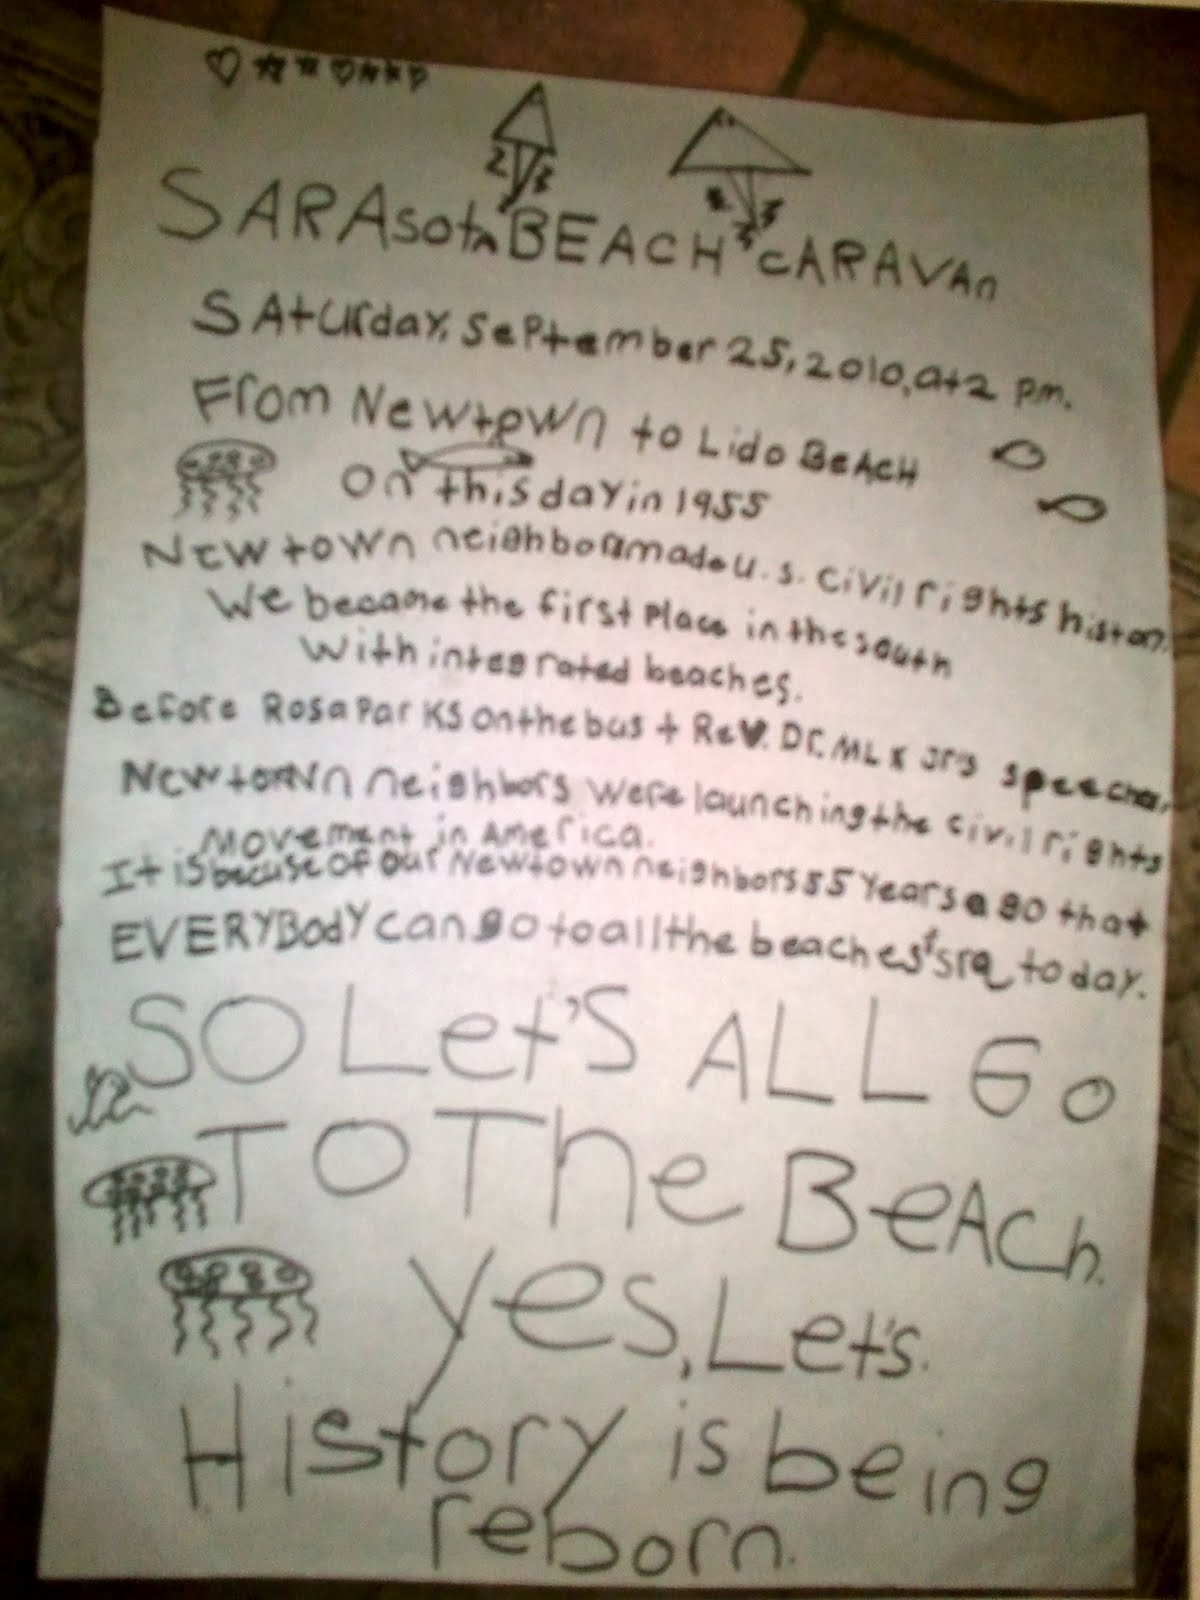 SARAsota BEACH CARAVAN
SAturday, September 25, 2010, at 2 pm.
From Newtown to Lido BeACH
on this day in 1955
Newtown neighbors made u.s. civil rights history.
We became the first place in the south
with integrated beaches.
Before Rosa Parks on the bus + Rev. Dr. MLK Jr's speeches,
Newtown neighbors were launching the civil rights
movement in America.
It is becuse of our Newtown neighbors 55 years ago that
EVERYBODY can go to all the beaches srq today.
SO Let's ALL Go
TO The BeACh.
Yes, Let's.
History is being
reborn.